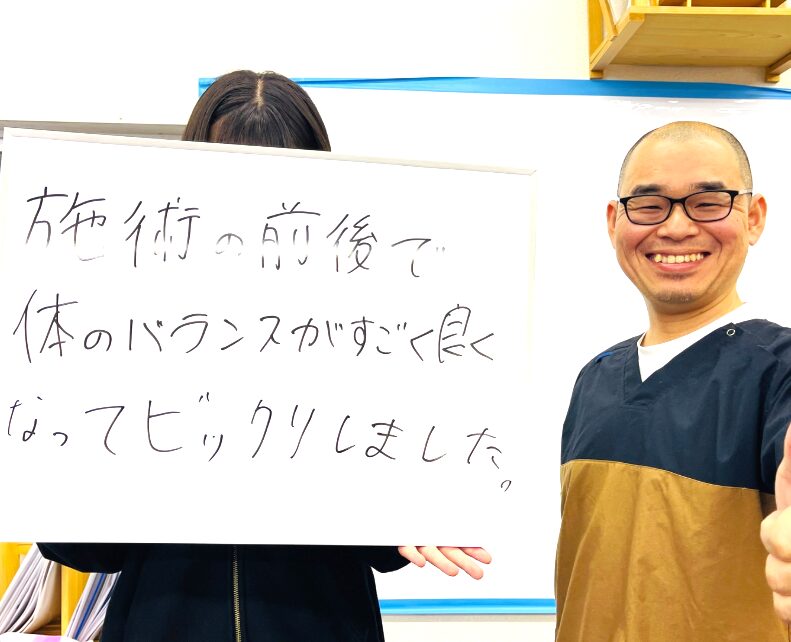 施術の前後で
体のバランスがすごく良く
なってビックリしました。